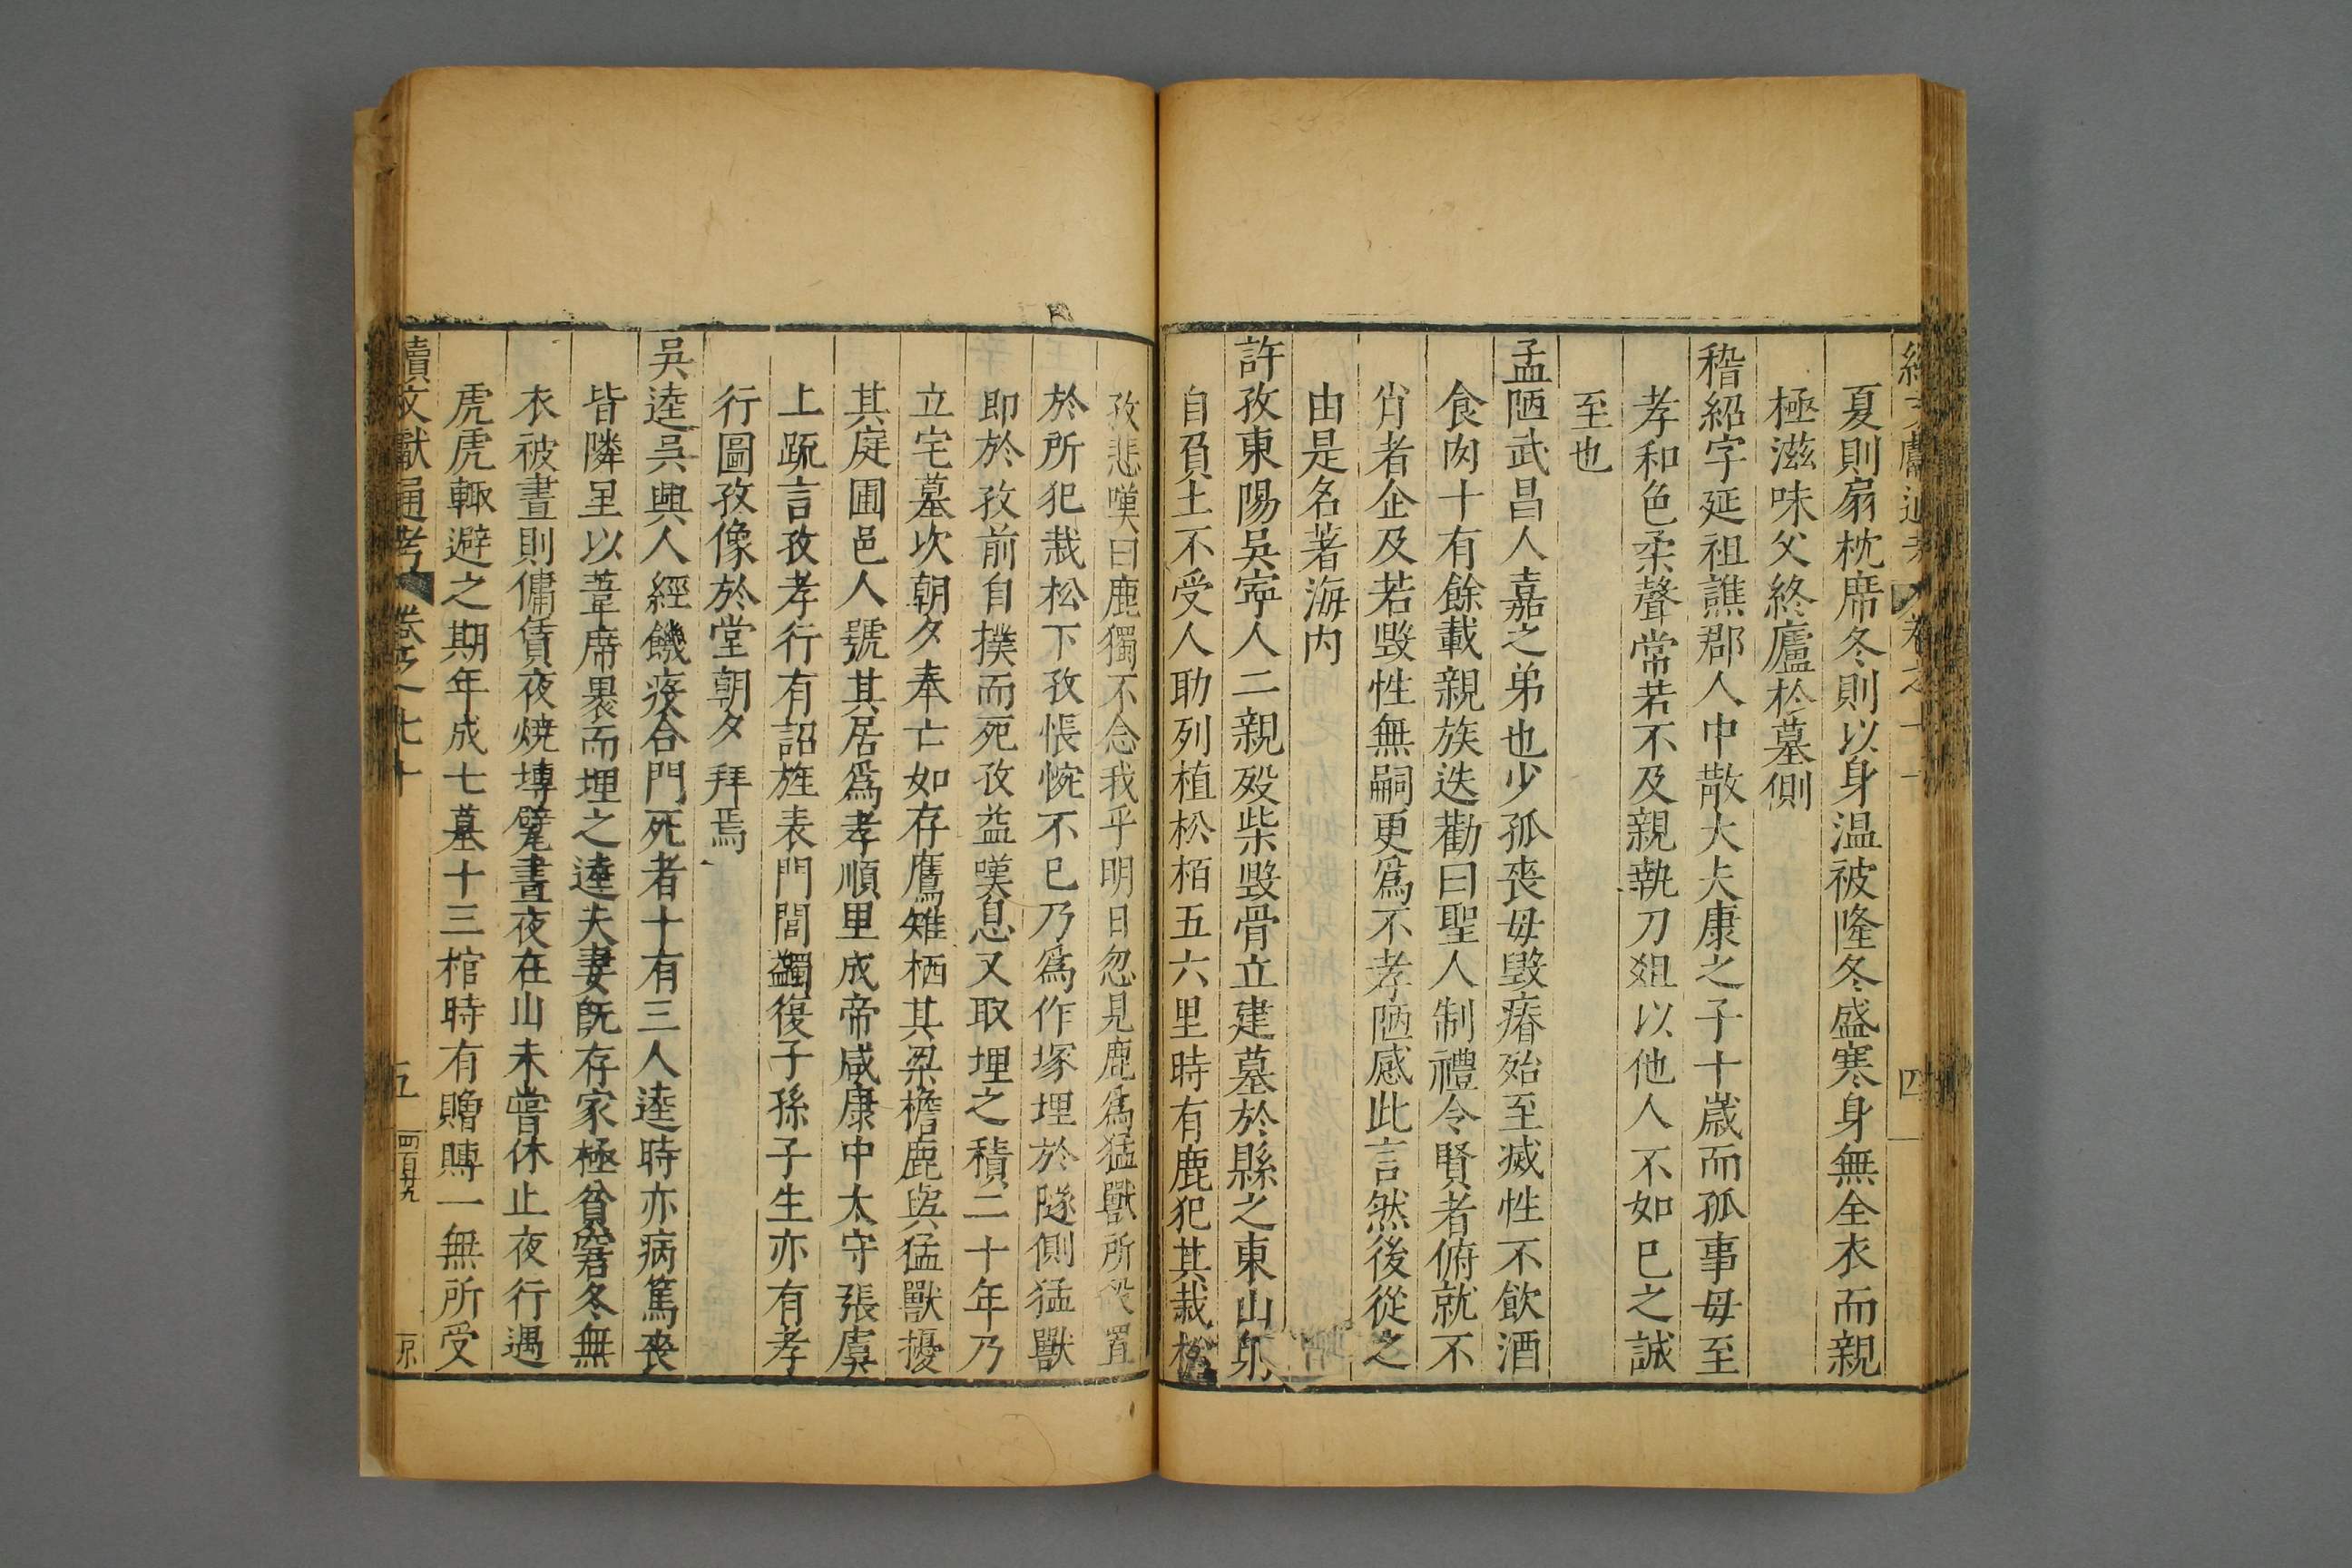 夏則扇枕席冬則以身温被隆冬盛寒身無全衣而親
極滋味父終廬於墓側
嵇紹字延祖譙郡人中散大夫康之子十歲而孤事母至
孝和色柔聲常若不及親執刀俎以他人不如已之誠
至也
孟陋武昌人嘉之弟也少孤喪母毀瘠殆至滅性不飲酒
食肉十有餘載親族迭勸曰聖人制禮令賢者俯就不
肖者企及若毀性無嗣更爲不孝陋感此言然後從之
由是名著海内
許孜東陽吳寧人二親殁柴毀骨立建墓於縣之東山躬
自負土不受人助列植松栢五六里時有鹿犯其栽松
孜悲嘆曰鹿獨不念我乎明日忽見鹿爲猛獸所殺置
於所犯栽松下孜悵惋不已乃爲作塚埋於隧側猛獸
即於孜前自撲而死孜益嘆息又取埋之積二十年乃
立宅墓次朝夕奉亡如存鷹雉栖其梁檐鹿與猛獸擾
其庭圃邑人號其居爲孝順里成帝咸康中太守張虞
上疏言孜孝行有詔旌表門閭蠲復子孫子生亦有孝
行圖孜像於堂朝夕拜焉
吳逵吳興人經饑疫合門死者十有三人逵時亦病篤喪
皆隣里以葦席裹而埋之逵夫妻既存家極貧窘冬無
衣被晝則傭賃夜燒塼甓晝夜在山未嘗休止夜行遇
虎虎輙避之期年成七墓十三棺時有贈賻一無所受
續文獻通考 卷之七十 五 四百廿九 京